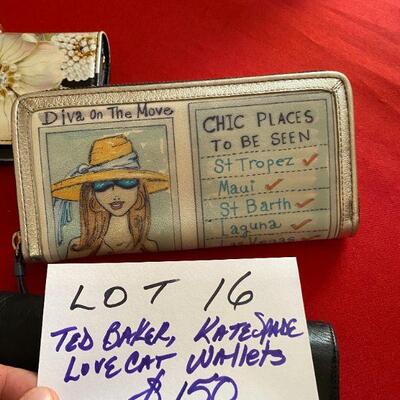 Diva On The Move
CHIC PLACES
TO BE SEEN
St Tropez ✓
Maui ✓
St Barth ✓
Laguna ✓
LOT 16
TED BAKER, KATE SPADE
LOVECAT WALLETS
$150